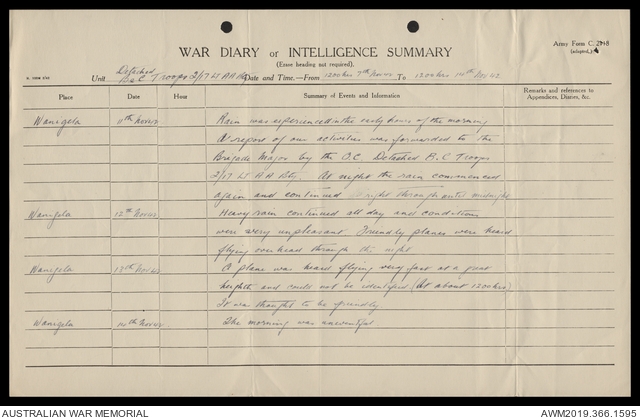 Army Form C. 2118
(adapted.)
WAR DIARY or INTELLIGENCE SUMMARY
(Erase heading not required).
Unit Detached B & C Troops 2/17 Lt AA Bty Date and Time.—From 1200hrs 7th Nov 42 To 1200hrs 14th Nov 42
Place Date Hour Summary of Events and Information Remarks and references to Appendices, Diaries, &c.
Wanigela 11th Nov 42 Rain was experienced in the early hours of the morning
A report of our activities was forwarded to the
Brigade Major by the O.C. Detached B.C Troops
2/17 Lt A A Bty. At night the rain commenced
again and continued right through until midnight
Wanigela 12th Nov 42 Heavy rain continued all day and conditions
were very unpleasant Friendly planes were heard
flying overhead through the night
Wanigela 13th Nov 42 A plane was heard flying very fast at a great
heighth and could not be identified (At about 1200hrs)
It was thought to be friendly.
Wanigela 14th Nov 42 The morning was uneventful
AUSTRALIAN WAR MEMORIAL AWM2019.366.1595